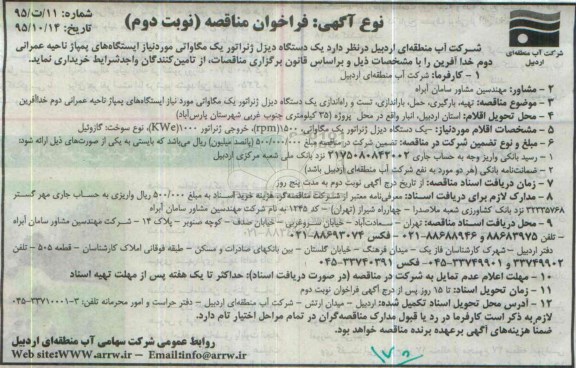 شماره: ۱۱/ت/۹۵
تاریخ: ۹۵/۱۰/۱۳
نوع آگهی: فراخوان مناقصه (نوبت دوم)
شرکت آب منطقه‌ای
اردبیل
شرکت آب منطقه‌ای اردبیل درنظر دارد یک دستگاه دیزل ژنراتور یک مگاواتی موردنیاز ایستگاه‌های پمپاژ ناحیه عمرانی
دوم خدا آفرین را با مشخصات ذیل و براساس قانون برگزاری مناقصات، از تامین‌کنندگان واجدشرایط خریداری نماید.
۱ - کارفرما: شرکت آب منطقه‌ای اردبیل
۲ - مشاور: مهندسین مشاور سامان آبراه
۳ - موضوع مناقصه: تهیه، بارگیری، حمل، باراندازی، تست و راه‌اندازی یک دستگاه دیزل ژنراتور یک مگاواتی مورد نیاز ایستگاه‌های پمپاژ ناحیه عمرانی دوم خداآفرین
۴ - محل تحویل اقلام: استان اردبیل، انبار واقع در محل پروژه (۳۵ کیلومتری جنوب غربی شهرستان پارس‌آباد)
۵ - مشخصات اقلام موردنیاز: -یک دستگاه دیزل ژنراتور یک مگاواتی، ۱۵۰۰(rpm)، خروجی ژنراتور ۱۰۰۰(KWe)، نوع سوخت: گازوئیل
۶ - مبلغ و نوع تضمین شرکت در مناقصه: تضمین شرکت در مناقصه مبلغ ۵۰۰/۰۰۰/۰۰۰ (پانصد میلیون) ریال می‌باشد که بایستی به یکی از صورت‌های ذیل ارائه شود:
۱ - رسید بانکی واریز وجه به حساب جاری ۲۱۷۵۰۸۰۸۴۲۰۰۲ نزد بانک ملی شعبه مرکزی اردبیل
۲ - ضمانت‌نامه بانکی (هر دو مورد به نفع شرکت آب منطقه‌ای اردبیل باشد)
۷ - زمان دریافت اسناد مناقصه: از تاریخ درج آگهی نوبت دوم به مدت پنج روز
۸ - مدارک لازم برای دریافت اسناد: معرفی‌نامه معتبر از شرکت مناقصه‌گر، هزینه خرید اسناد به مبلغ ۵۰۰/۰۰۰ ریال واریزی به حساب جاری مهر گستر
۲۲۳۳۵۷۶۸ نزد بانک کشاورزی شعبه ملاصدرا - چهارراه شیراز (تهران) - کد ۱۲۴۵ به نام شرکت مهندسین مشاور سامان آبراه
۹ - محل دریافت اسناد مناقصه: تهران - سعادت‌آباد - خیابان سروغربی - خیابان صدف - کوچه صنوبر - پلاک ۱۴ - شرکت مهندسین مشاور سامان آبراه
- تلفن ۸۸۶۸۳۹۷۵ و ۸۸۶۸۸۹۴۶-۰۲۱ - فکس ۸۸۶۹۳۰۷۴-۰۲۱
دفتر اردبیل - شهرک کارشناسان فاز یک - میدان فرهنگ - خیابان گلستان - بین بانکهای صادرات و مسکن - طبقه فوقانی املاک کارشناسان - قطعه ۵۰۵ - تلفن
۳۳۷۴۹۹۰۲ و ۳۳۷۴۹۹۰۱-۰۴۵ - فکس ۳۳۷۴۰۳۹۱-۰۴۵
۱۰ - مهلت اعلام عدم تمایل به شرکت در مناقصه (در صورت دریافت اسناد): حداکثر تا یک هفته پس از مهلت تهیه اسناد
۱۱ - زمان تحویل اسناد: تا ۱۵ روز پس از درج آگهی فراخوان نوبت دوم
۱۲ - آدرس محل تحویل اسناد تکمیل شده: اردبیل - میدان ارتش - شرکت آب منطقه‌ای اردبیل - دفتر حراست و امور محرمانه تلفن: ۳-۳۳۷۱۰۰۰۱-۰۴۵
لازم به ذکر است کارفرما در رد یا قبول مدارک مناقصه‌گران در تمام مراحل اختیار تام دارد.
ضمنا هزینه‌های آگهی برعهده برنده مناقصه خواهد بود.
روابط عمومی شرکت سهامی آب منطقه‌ای اردبیل
Web site:WWW.arrw.ir — Email:info@arrw.ir